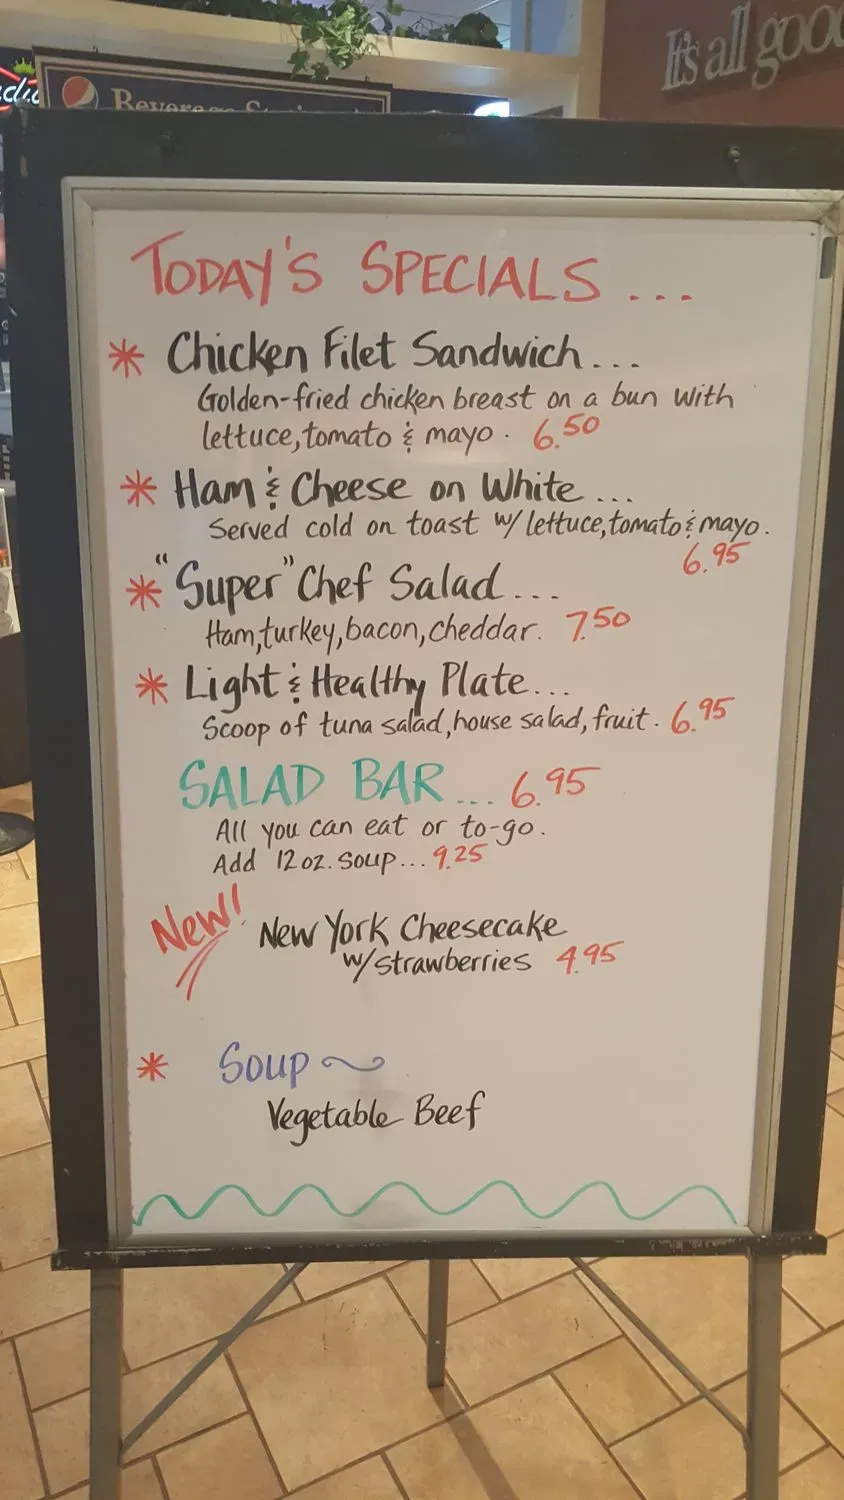 It's all good
Beverage
TODAY'S SPECIALS ...
* Chicken Filet Sandwich...
Golden-fried chicken breast on a bun with
lettuce, tomato & mayo. 6.50
* Ham & Cheese on White ...
Served cold on toast w/ lettuce, tomato & mayo.
6.95
* "Super" Chef Salad...
Ham, turkey, bacon, cheddar. 7.50
* Light & Healthy Plate...
Scoop of tuna salad, house salad, fruit. 6.95
SALAD BAR ... 6.95
All you can eat or to-go.
Add 12 oz. soup... 9.25
New!
New York Cheesecake
w/strawberries 4.95
* Soup ~
Vegetable Beef